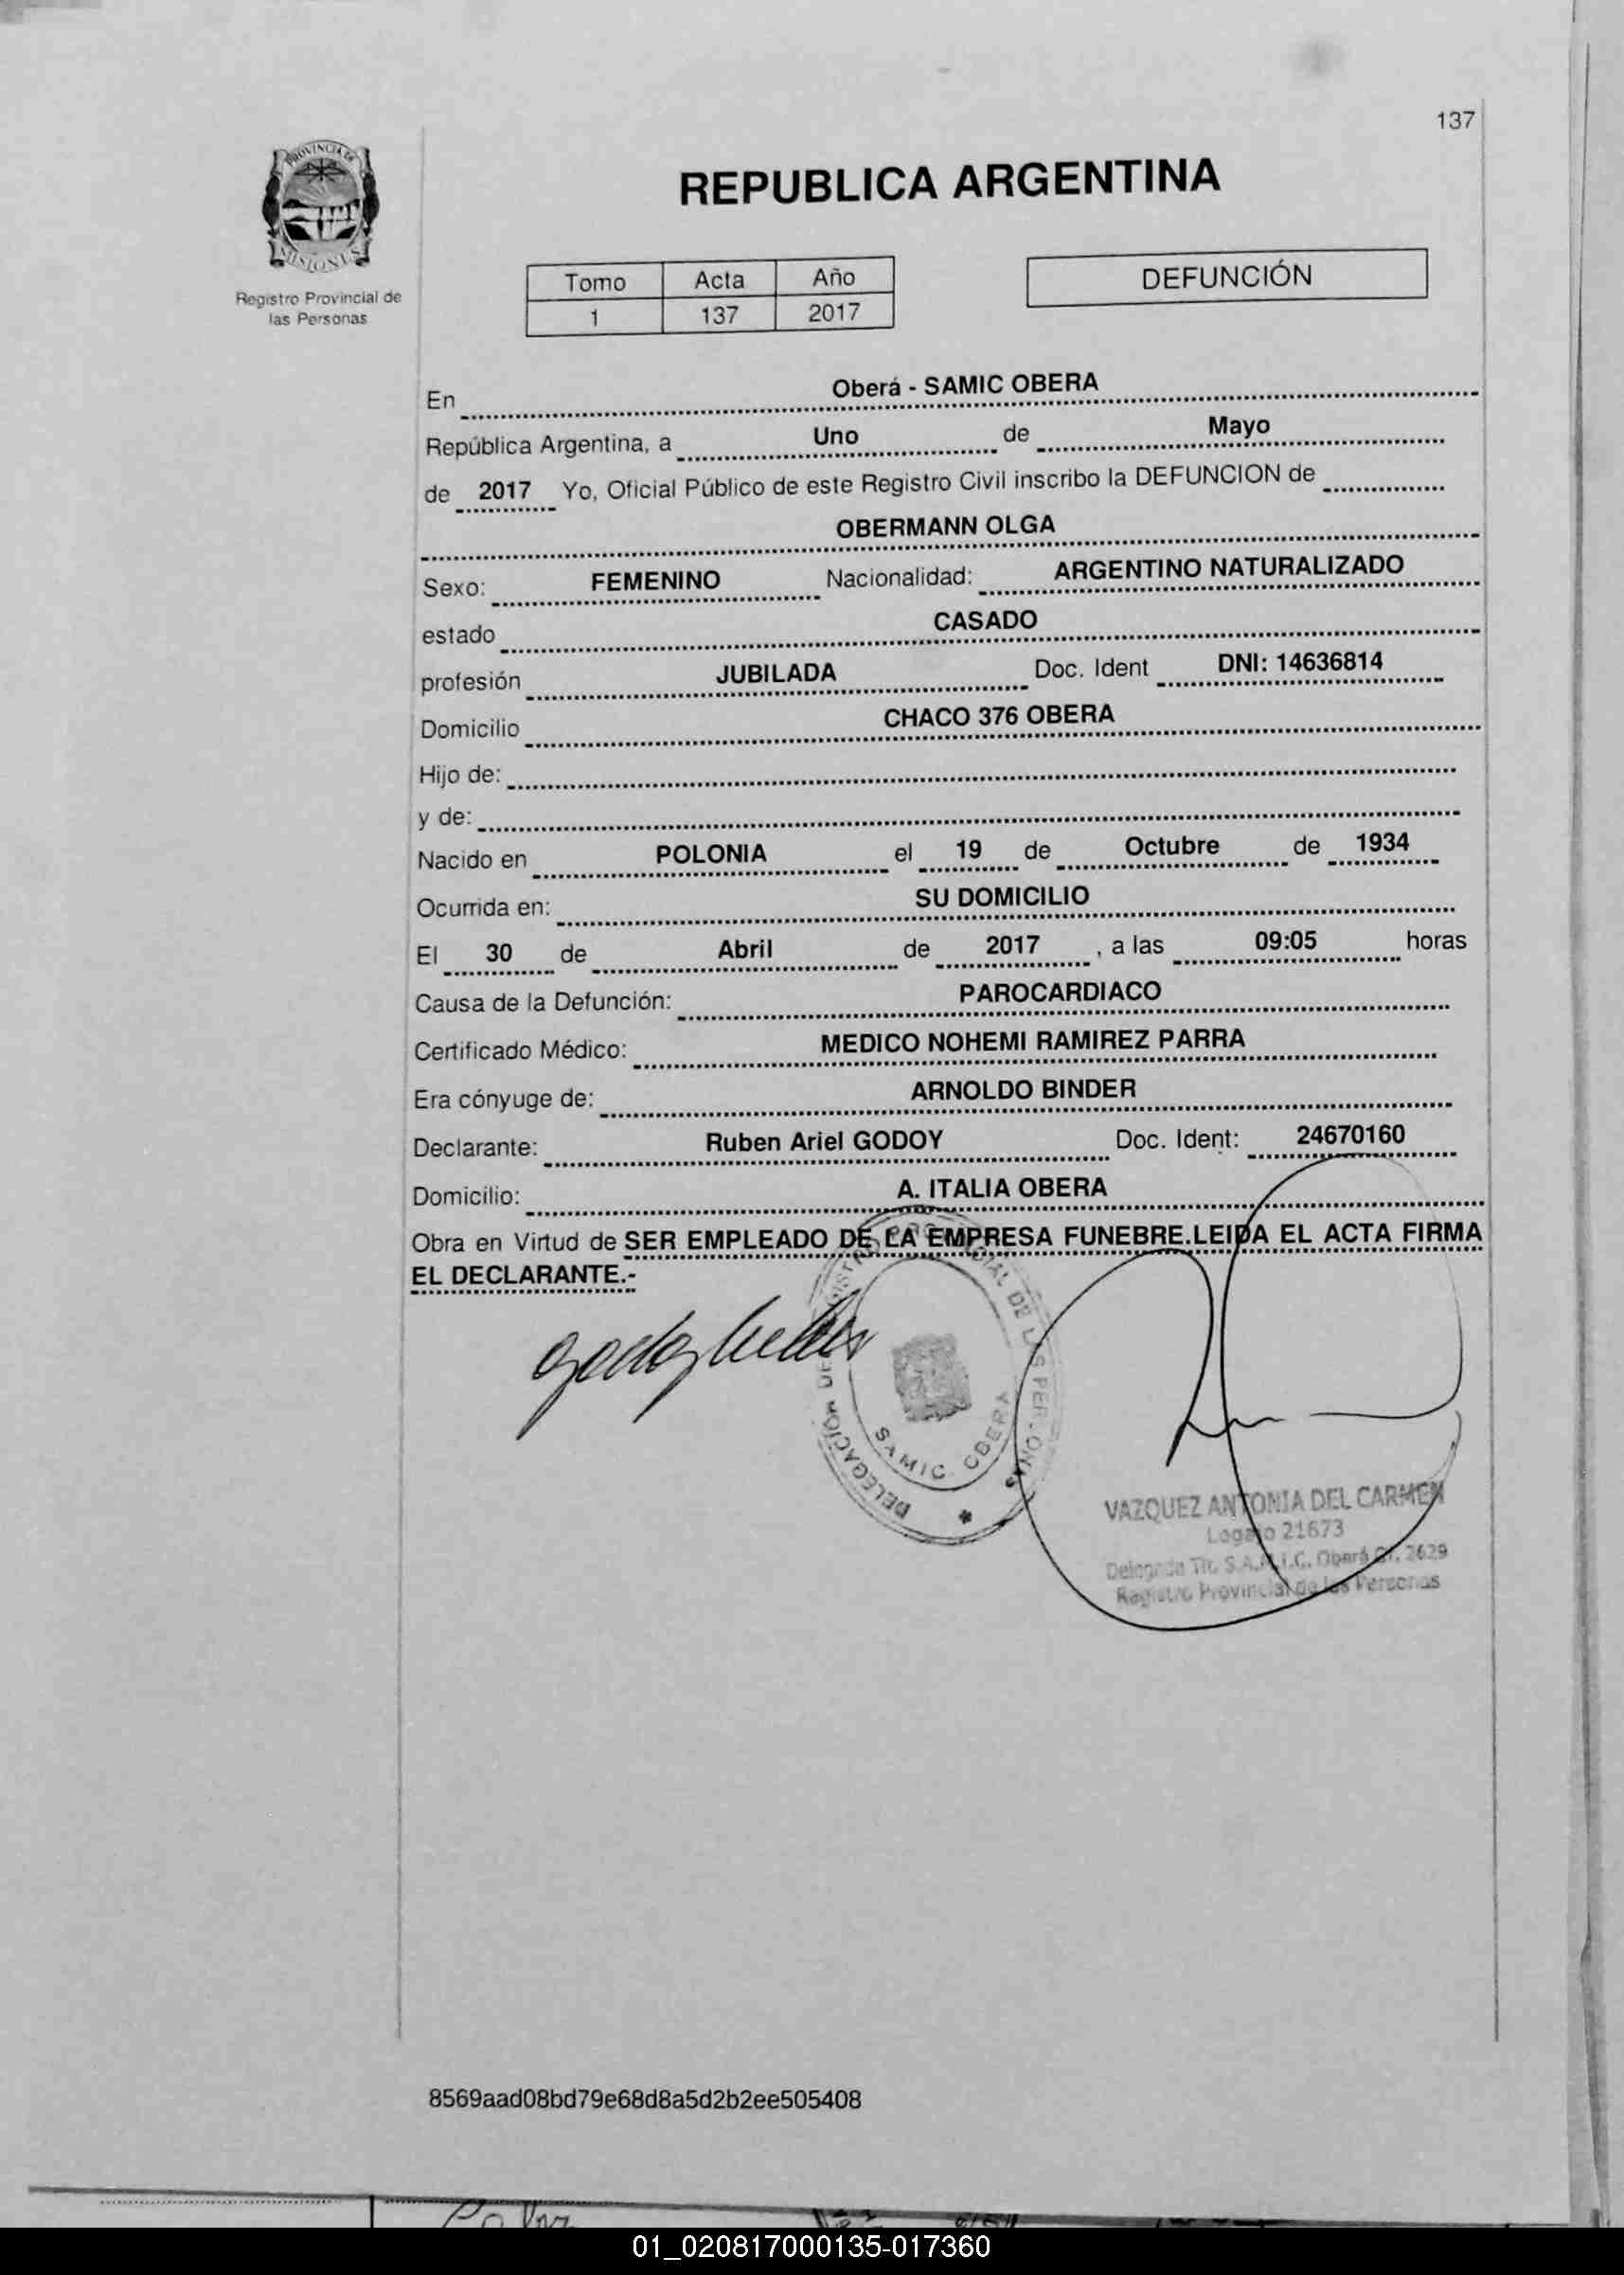 137
PROVINCIA DE
MISIONES
Registro Provincial de
las Personas
REPUBLICA ARGENTINA
Tomo Acta Año
1 137 2017
DEFUNCIÓN
En Oberá - SAMIC OBERA
República Argentina, a Uno de Mayo
de 2017 Yo, Oficial Público de este Registro Civil inscribo la DEFUNCION de
OBERMANN OLGA
Sexo: FEMENINO Nacionalidad: ARGENTINO NATURALIZADO
estado CASADO
profesión JUBILADA Doc. Ident DNI: 14636814
Domicilio CHACO 376 OBERA
Hijo de:
y de:
Nacido en POLONIA el 19 de Octubre de 1934
Ocurrida en: SU DOMICILIO
El 30 de Abril de 2017 , a las 09:05 horas
Causa de la Defunción: PAROCARDIACO
Certificado Médico: MEDICO NOHEMI RAMIREZ PARRA
Era cónyuge de: ARNOLDO BINDER
Declarante: Ruben Ariel GODOY Doc. Ident: 24670160
Domicilio: A. ITALIA OBERA
Obra en Virtud de SER EMPLEADO DE LA EMPRESA FUNEBRE.LEIDA EL ACTA FIRMA
EL DECLARANTE.-
SAMIC. OBERA
VAZQUEZ ANTONIA DEL CARMEN
Legajo 21673
Delegada Tit. S.A.M.I.C. Oberá 2629
Registro Provincial de las Personas
8569aad08bd79e68d8a5d2b2ee505408
01_020817000135-017360